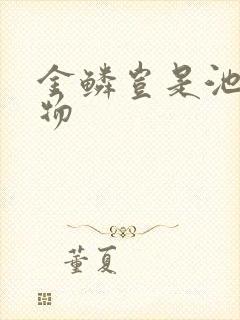 金鳞岂是池
物
董夏